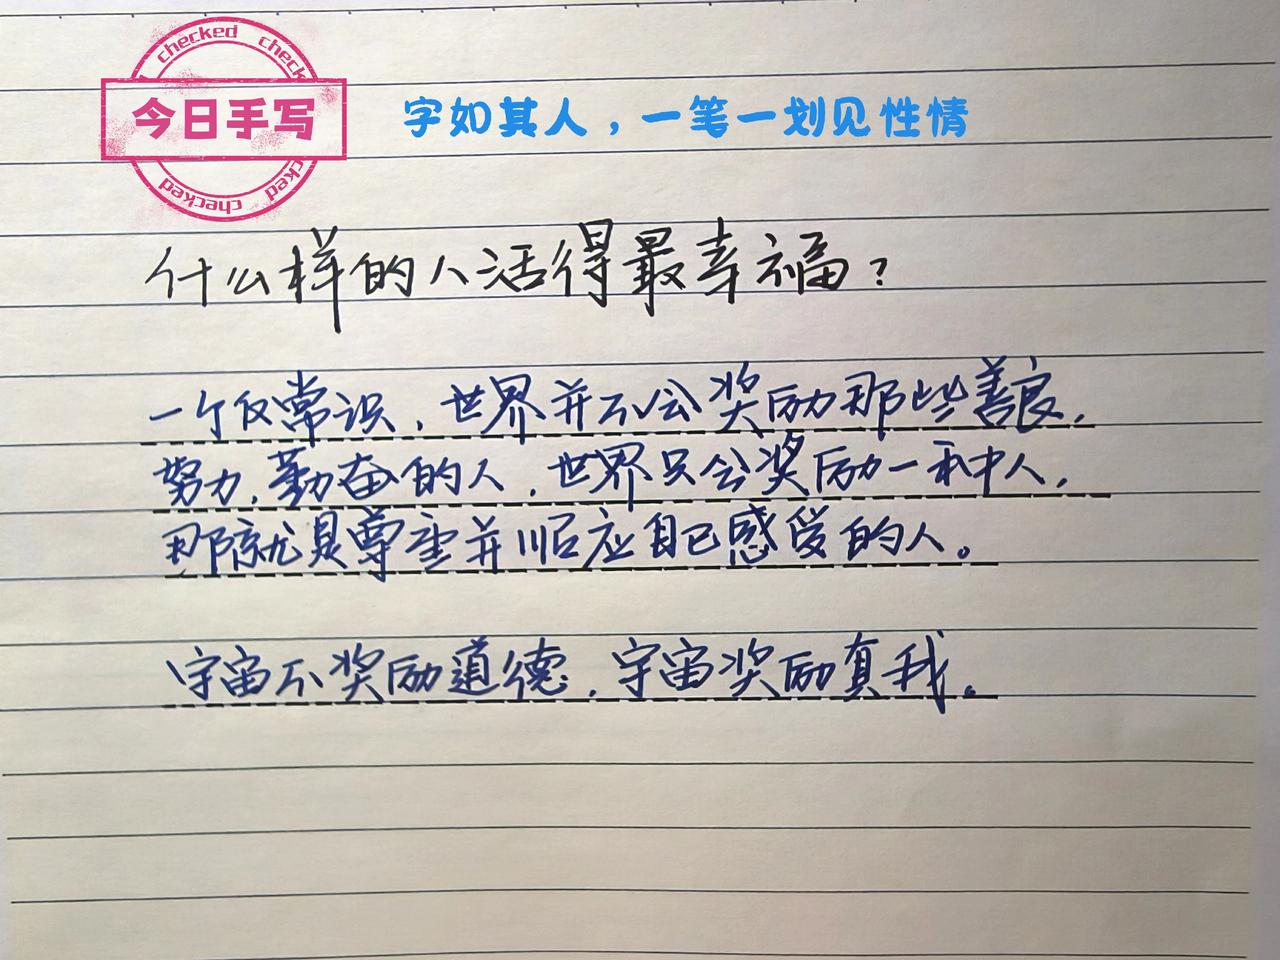 checked check
今日手写
checked cked
字如其人，一笔一划见性情
什么样的人活得最幸福？
一个反常识，世界并不会奖励那些善良，
努力，勤奋的人，世界只会奖励一种人，
那就是尊重并顺应自己感受的人。
宇宙不奖励道德，宇宙奖励真我。